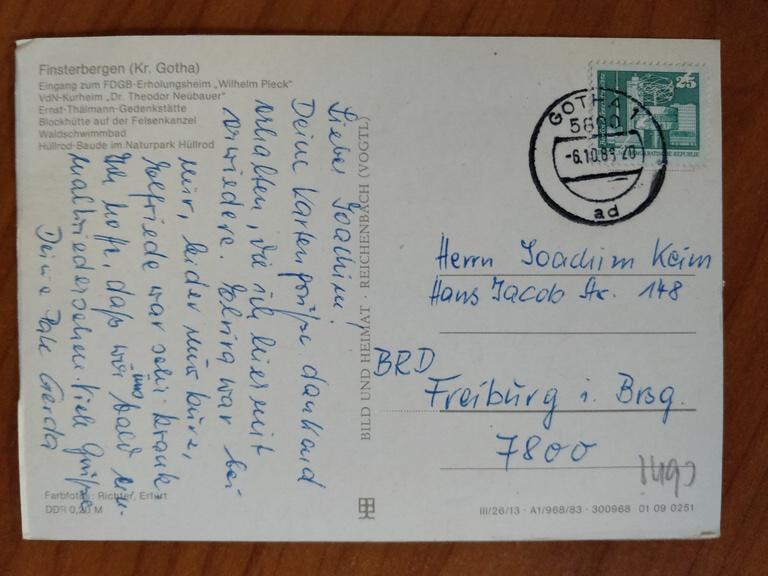 Finsterbergen (Kr. Gotha)
Eingang zum FDGB-Erholungsheim „Wilhelm Pieck"
VdN-Kurheim „Dr. Theodor Neubauer"
Ernst-Thälmann-Gedenkstätte
Blockhütte auf der Felsenkanzel
Waldschwimmbad
Hüllrod-Baude im Naturpark Hüllrod
Lieber Joachim!
Deine Kartengrüße dankend
erhalten, die ich hiermit
erwiedere. war bei
mir, leider nur kurz,
Elfriede war sehr krank
Ich hoffe, daß wir uns bald ein-
mal wiedersehen. Viele Grüße
Deine Gerda
Farbfotos: Richter, Erfurt
DDR 0,20 M
BILD UND HEIMAT · REICHENBACH (VOGTL)
25
DEMOKRATISCHE REPUBLIK
GOTHA 1
5800
-6.10.8 -20
ad
Herrn Joachim Keim
Hans Jacob Str. 148
BRD
Freiburg i. Brsg.
7800
III/26/13 · A1/968/83 · 300968 01 09 0251